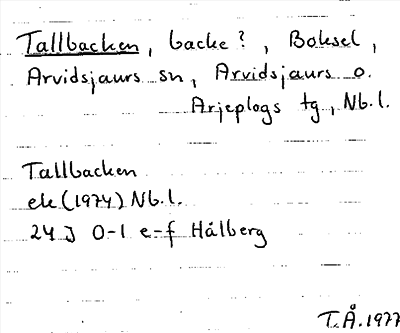 Tallbacken, backe?, Boksel,
Arvidsjaurs sn, Arvidsjaurs o.
Arjeplogs tg, Nb.l.
Tallbacken
ek (1974) Nb.l.
24J 0-1 e-f Hålberg
T.Å. 1977